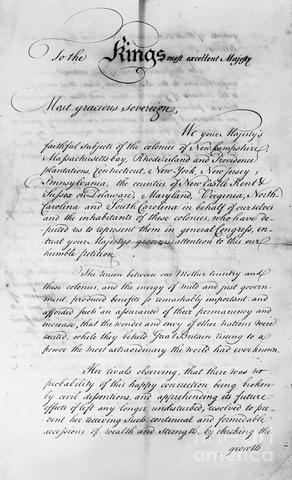 To the Kings most excellent Majesty
Most gracious Sovereign,
We your Majesty's
faithful subjects of the colonies of New Hampshire,
Massachusetts bay, Rhode island and Providence
plantations, Connecticut, New York, New Jersey,
Pennsylvania, the counties of New Castle, Kent &
Sussex on Delaware, Maryland, Virginia, North
Carolina and South Carolina in behalf of ourselves
and the inhabitants of these colonies, who have de
puted us to represent them in general Congress, en
treat your Majestys gracious attention to this our
humble petition.
The union between our Mother Country and
these colonies, and the energy of mild and just govern
ment, produced benefits so remarkably important, and
afforded such an assurance of their permanency and
increase, that the wonder and envy of other nations were
excited, while they beheld Great Britain riseing to a
power the most extraordinary the world had ever known.
Her rivals observing, that there was no
probability of this happy connection being broken
by civil dissentions, and apprehending its future
effects if left any longer undisturbed, resolved to pre
vent her receiving such continual and formidable
accessions of wealth and strength, by checking the
growth
fineartamerica